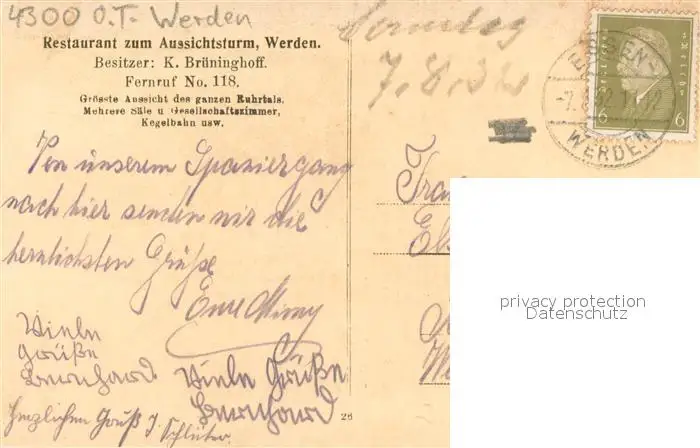 4300 O.T. Werden
Restaurant zum Aussichtsturm, Werden.
Besitzer: K. Brüninghoff.
Fernruf No. 118.
Grösste Aussicht des ganzen Ruhrtals.
Mehrere Säle u Gesellschaftszimmer,
Kegelbahn usw.
Sonntag
7.8.32
ESSEN-
WERDEN
6 6
Von unserem Spaziergang
nach hier senden wir die
herzlichsten Grüße
Viele
Grüße
Bernhard
Viele Grüße
Bernhard
Herzlichen Gruß J. Schlüter
26
privacy protection
Datenschutz